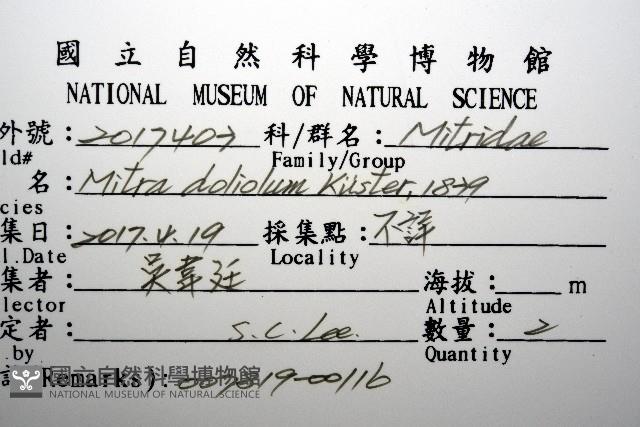 國立自然科學博物館
NATIONAL MUSEUM OF NATURAL SCIENCE
外號：20174037 科/群名：Mitridae
ld# Family/Group
名：Mitra doliolum Küster, 1839
cies
集日：2017.4.19 採集點：不詳
l.Date Locality
集者：吳韋廷 海拔： m
lector Altitude
定者： S.C.Lee. 數量： 2
.by Quantity
Remarks): -00116
國立自然科學博物館
NATIONAL MUSEUM OF NATURAL SCIENCE